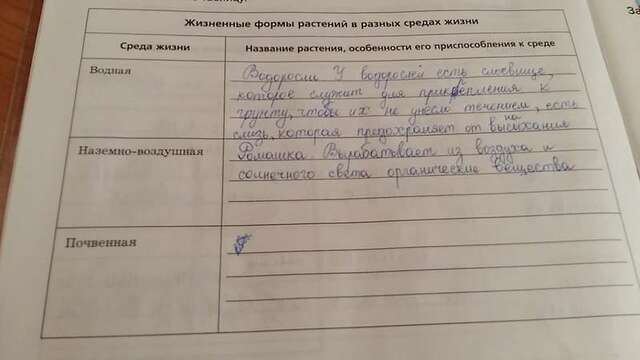 Жизненные формы растений в разных средах жизни
Среда жизни
Название растения, особенности его приспособления к среде
Водная
Водоросли У водорослей есть слоевище,
которое служит для прикрепления к
грунту, чтобы их не унесло течением, есть
слизь, которая предохраняет от высыхания
Наземно-воздушная
Ромашка. Вырабатывает из воздуха и
солнечного света органические вещества
Почвенная